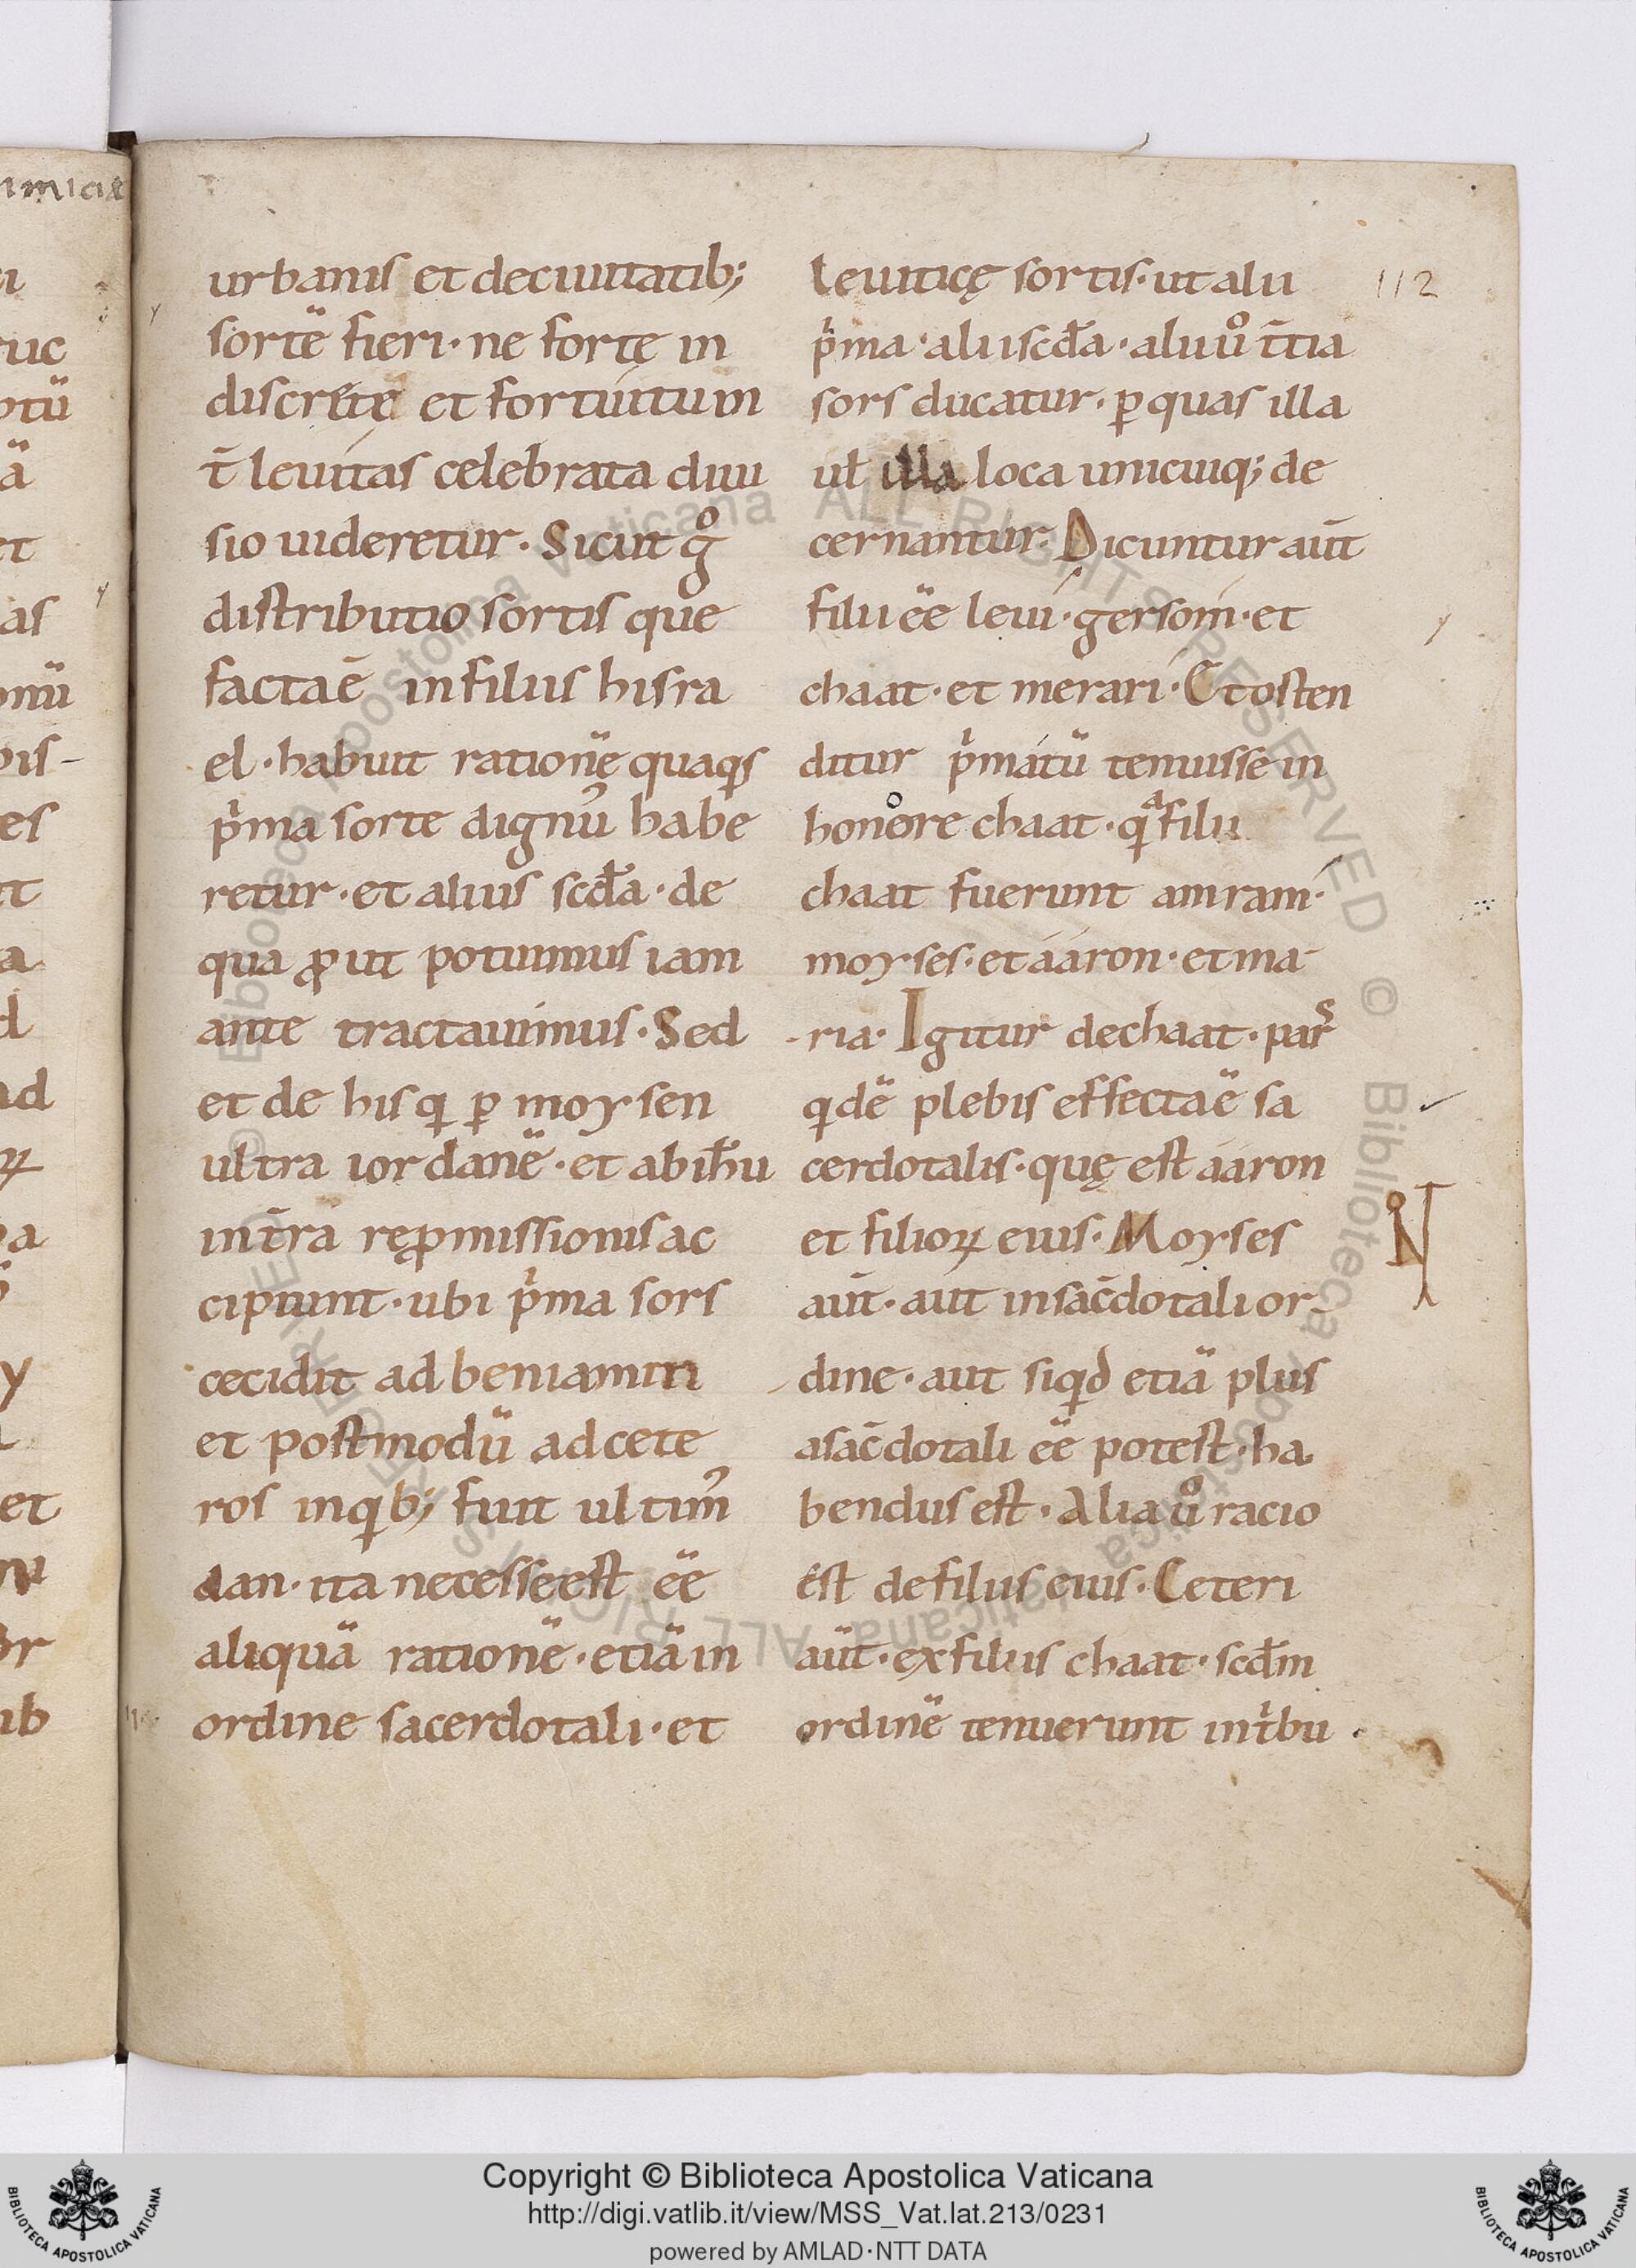 imicię
112
urbanis et deciuitatib;
sortē fieri· ne fortę in
discrete et fortuitum
t̄ leuitas celebrata diui
sio uideretur· Sicut gͦ
distributio sortis que
facta ē in filiis hisra
el· habuit rationē quaq̇s
pͥma sorte dignuˀ habe
retur· et alius scd̄a· de
qua ꝓut potuimus iam
ante tractauimus· Sed
et de his q̇ ꝑ moysen
ultra iordanē· et abih̄u
in t̄ra reꝓmissionis ac
cipiunt· ubi pͥma sors
cecidit ad beniamin
et postmodū ad cete
ros in qͥb; fuit ultimˀ
dan· ita necesse est ēē
aliquā rationē· etiā in
ordine sacerdotali· et
leuiticę sortis· ut alii
pͥma· alii scd̄a· alii uͦ t̄tia
sors ducatur· ꝑ quas illa
ul̄ illa loca unicuiq; de
cernantur· Dicuntur aūt
filii ēē leui· gersom· et
chaat· et merari· Et osten
ditur pͥmatū tenuisse in
honore chaat· qᵃ filii
chaat fuerunt amram·
moyses· et aaron· et ma-
ria· Igitur de chaat· parˢ
qͥdē plebis effecta ē sa
cerdotalis· quę est aaron
et filioꝝ eius· Moyses
aūt· aut in sac̄dotali or-
dine· aut siqͥd etiā plus
a sac̄dotali ēē potest· ha
bendus est· Alia uͦ racio
est de filiis eius· Ceteri
aūt· ex filiis chaat· scd̄m
ordinē tenuerunt in tͥbu
Copyright © Biblioteca Apostolica Vaticana
http://digi.vatlib.it/view/MSS_Vat.lat.213/0231
powered by AMLAD·NTT DATA
BIBLIOTECA APOSTOLICA VATICANA
BIBLIOTECA APOSTOLICA VATICANA
© Biblioteca Apostolica Vaticana ALL RIGHTS RESERVED © Biblioteca Apostolica Vaticana ALL RIGHTS RESERVED